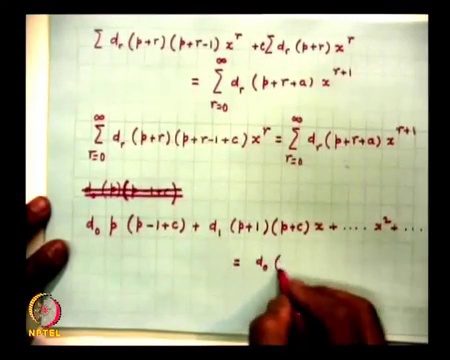 ∑ d_r (p+r)(p+r-1) x^r + c∑ d_r (p+r) x^r
= ∑_{r=0}^{∞} d_r (p+r+a) x^{r+1}
∑_{r=0}^{∞} d_r (p+r)(p+r-1+c) x^r = ∑_{r=0}^{∞} d_r (p+r+a) x^{r+1}
d_0 p (p-1+c) + d_1 (p+1)(p+c) x + .... x^2 + ...
= d_0 (
NPTEL